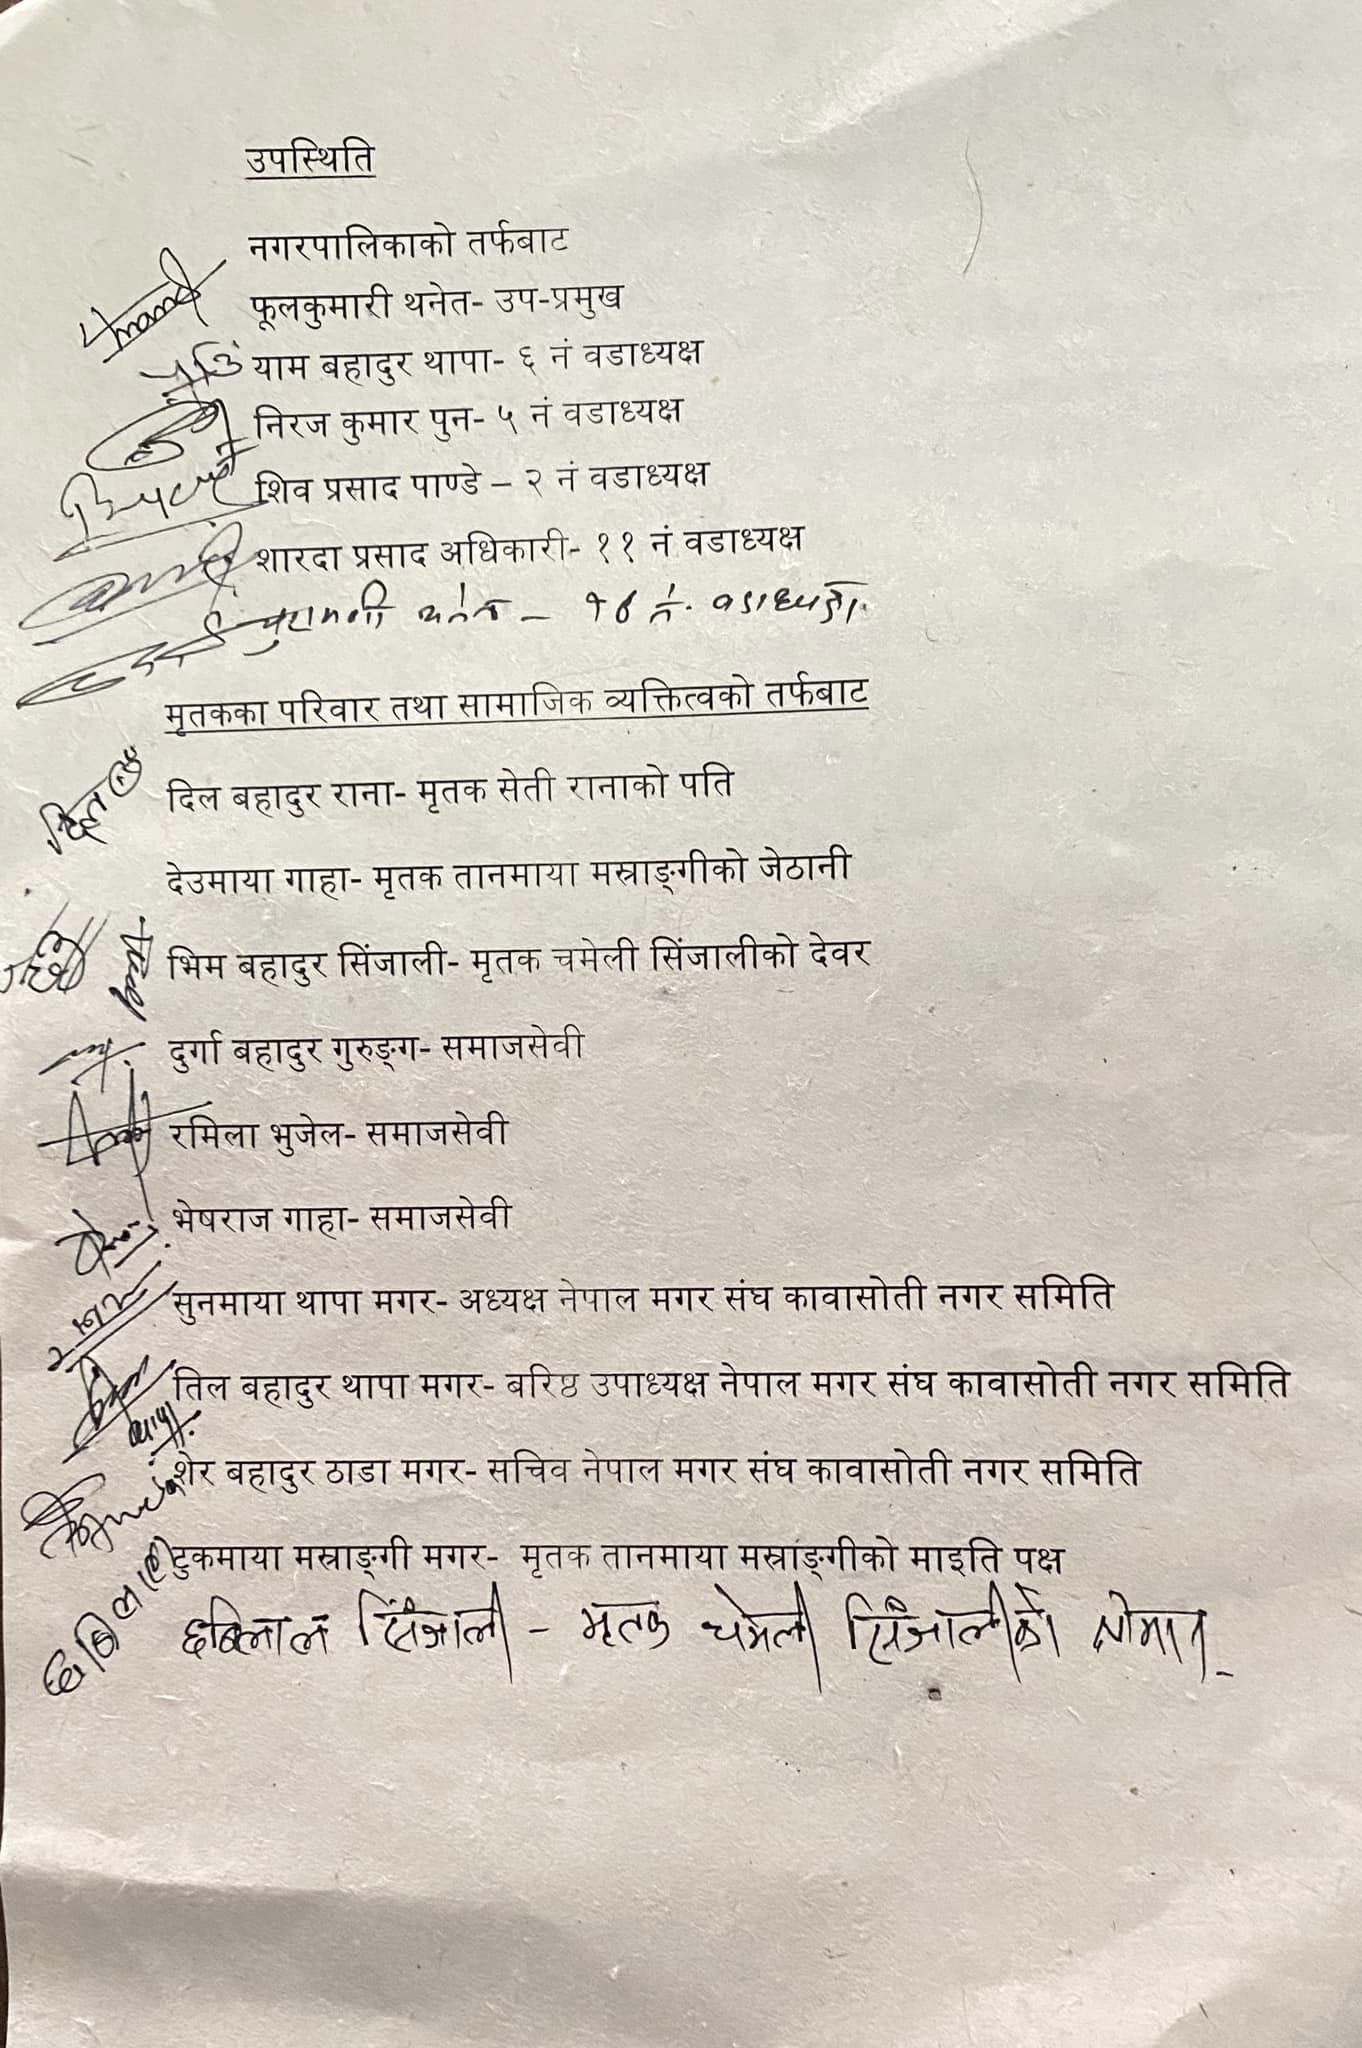 उपस्थिति
नगरपालिकाको तर्फबाट
फूलकुमारी थनेत- उप-प्रमुख
याम बहादुर थापा- ६ नं वडाध्यक्ष
निरज कुमार पुन- ५ नं वडाध्यक्ष
शिव प्रसाद पाण्डे – २ नं वडाध्यक्ष
शारदा प्रसाद अधिकारी- ११ नं वडाध्यक्ष
थनेत – १७ नं. वडाध्यक्ष
मृतकका परिवार तथा सामाजिक व्यक्तित्वको तर्फबाट
दिल बहादुर राना- मृतक सेती रानाको पति
देउमाया गाहा- मृतक तानमाया मस्राङ्गीको जेठानी
भिम बहादुर सिंजाली- मृतक चमेली सिंजालीको देवर
दुर्गा बहादुर गुरुङ्ग- समाजसेवी
रमिला भुजेल- समाजसेवी
भेषराज गाहा- समाजसेवी
सुनमाया थापा मगर- अध्यक्ष नेपाल मगर संघ कावासोती नगर समिति
तिल बहादुर थापा मगर- बरिष्ठ उपाध्यक्ष नेपाल मगर संघ कावासोती नगर समिति
शेर बहादुर ठाडा मगर- सचिव नेपाल मगर संघ कावासोती नगर समिति
टुकमाया मस्राङ्गी मगर- मृतक तानमाया मस्राङ्गीको माइति पक्ष
छबिलाल सिंजाली - मृतक चमेली सिंजालीको श्रीमान्
छबिलाल